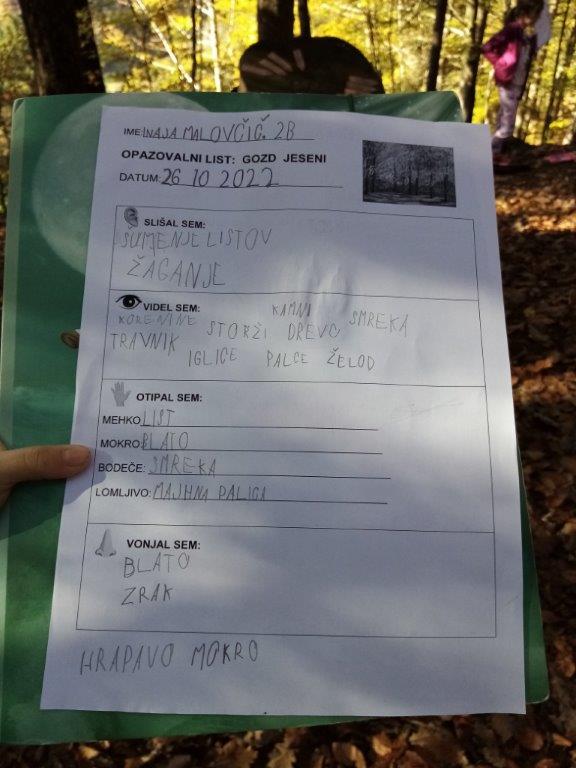 IME: NAJA MALOVČIČ 2B
OPAZOVALNI LIST: GOZD JESENI
DATUM: 26 10 2022
SLIŠAL SEM:
ŠUMENJE LISTOV
ŽAGANJE
VIDEL SEM:
KAMNI
KORENINE STORŽI DREVO SMREKA
TRAVNIK
IGLICE PALCE ŽELOD
OTIPAL SEM:
MEHKO LIST
MOKRO BLATO
BODEČE: SMREKA
LOMLJIVO: MAJHNA PALICA
VONJAL SEM:
BLATO
ZRAK
HRAPAVO MOKRO